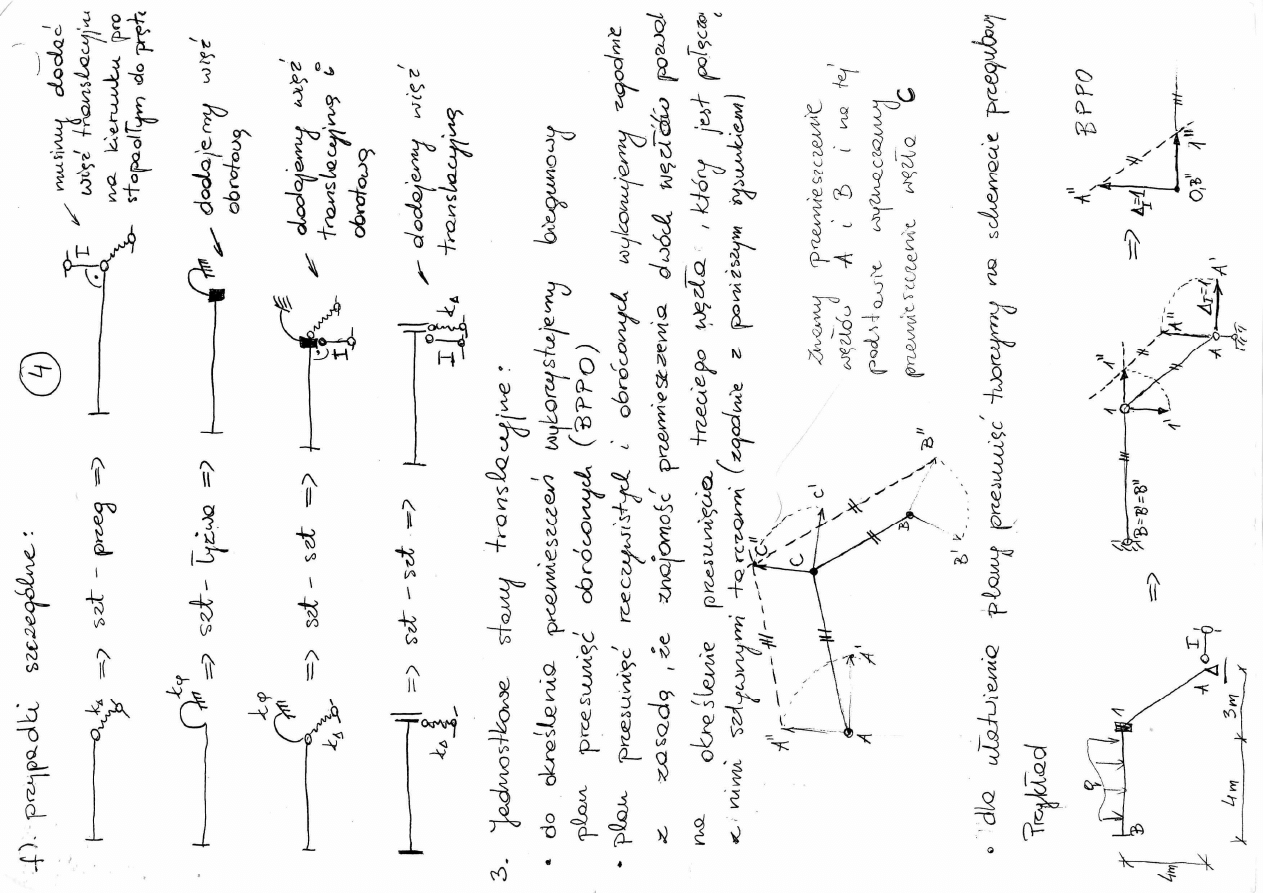 4
f). przypadki szczególne:
kΔ
=> szt - przeg =>
I
musimy dodać
więź translacyjną
na kierunku pro
stopadłym do pręta
kφ
=> szt - łyżwa =>
dodajemy więź
obrotową
kφ
kΔ
=> szt - szt =>
I
dodajemy więź
translacyjną i
obrotową
kΔ
=> szt - szt =>
I kΔ
dodajemy więź
translacyjną
3. Jednostkowe stany translacyjne:
• do określenia przemieszczeń wykorzystujemy biegunowy
plan przesunięć obróconych (BPPO)
• plan przesunięć rzeczywistych i obróconych wykonujemy zgodnie
z zasadą, że znajomość przemieszczenia dwóch węzłów pozwal
na określenie przesunięcia trzeciego węzła, który jest połączon
z nimi sztywnymi tarczami (zgodnie z poniższym rysunkiem)
A'' A A' C'' C C' B B' B''
Znamy przemieszczenie
węzłów A i B i na tej
podstawie wyznaczamy
przemieszczenie węzła C
• dla ułatwienia plany przesunięć tworzymy na schemacie przegubowy
Przykład
q
B 1 A I
4m
4m 3m
=>
B=B'=B''
1 1' 1''
A A' A''
ΔI=1
=>
BPPO
A''
ΔI=1
0,B''
1''